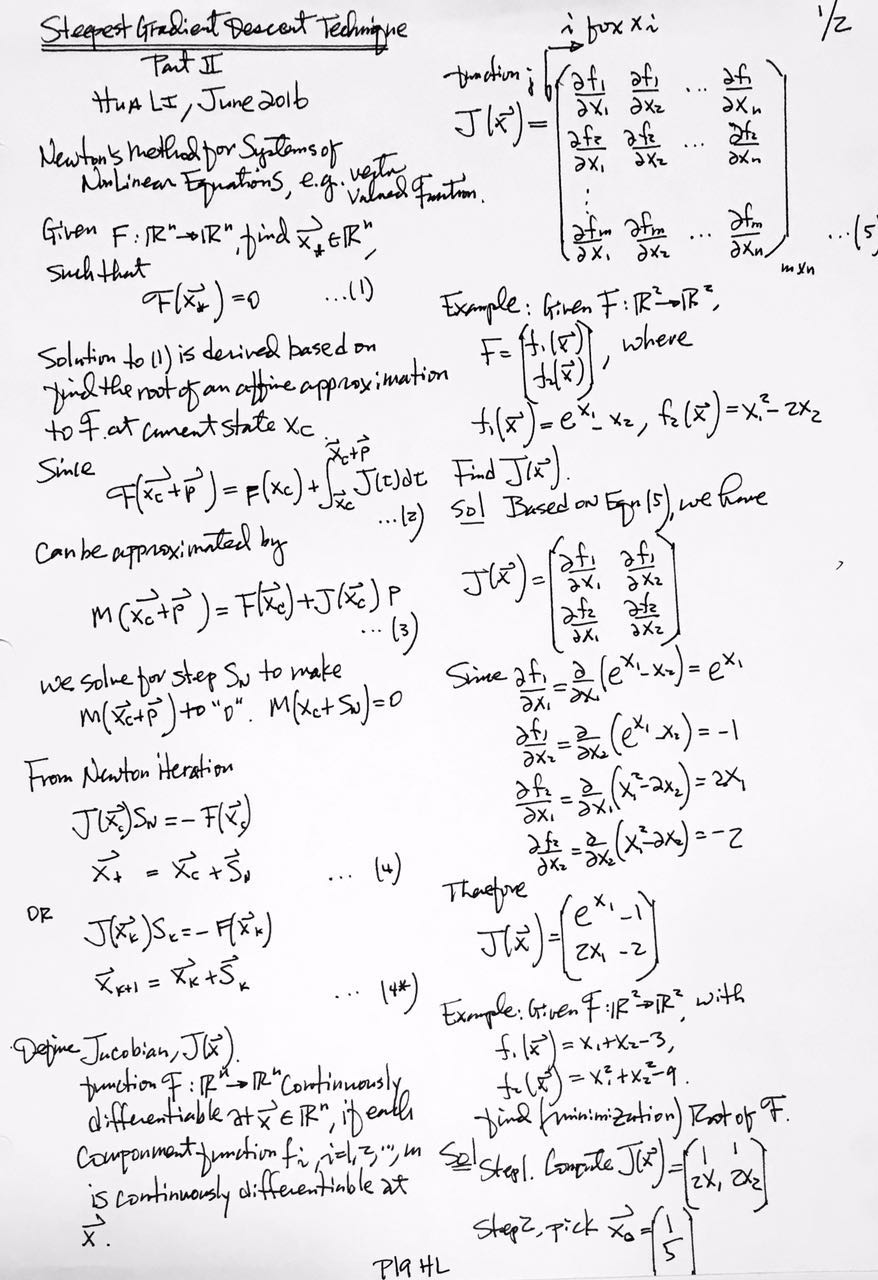 Steepest Gradient Descent Technique
Part II
HUA LI, June 2016
Newton's method for Systems of
NonLinear Equations, e.g. vector
Valued Function.
Given F: ℝⁿ→ℝⁿ, find x⃗* ∈ ℝⁿ,
such that
F(x⃗*) = 0 ...(1)
Solution to (1) is derived based on
find the root of an affine approximation
to F. at current state Xc.
Since
F(x⃗c+p⃗) = F(xc) + ∫_{x⃗c}^{x⃗c+p⃗} J(t)dt
...(2)
Can be approximated by
M(x⃗c+p⃗) = F(x⃗c)+J(x⃗c) P
...(3)
we solve for step SN to make
M(x⃗c+p⃗) to "0". M(xc+SN)=0
From Newton iteration
J(x⃗c)SN = -F(x⃗c)
x⃗+ = x⃗c + S⃗N ... (4)
OR
J(x⃗k)Sk = -F(x⃗k)
x⃗k+1 = x⃗k + S⃗k
... (4*)
Define Jacobian, J(x⃗).
function F: ℝⁿ→ℝⁿ Continuously
differentiable at x⃗ ∈ ℝⁿ, if each
Componment function fi, i=1,2,..., m
is continuously differentiable at
x⃗.
1/2
i for xi
function j
J(x⃗) = ( ∂f1/∂x1 ∂f1/∂x2 ... ∂f1/∂xn
∂f2/∂x1 ∂f2/∂x2 ... ∂f2/∂xn
⋮
∂fm/∂x1 ∂fm/∂x2 ... ∂fm/∂xn ) m×n ...(5)
Example: Given F: ℝ²→ℝ²,
F = ( f1(x⃗)
f2(x⃗) ), where
f1(x⃗) = e^x1 - x2, f2(x⃗) = x1² - 2x2
Find J(x⃗).
Sol Based on Eqn (5), we have
J(x⃗) = ( ∂f1/∂x1 ∂f1/∂x2
∂f2/∂x1 ∂f2/∂x2 )
Since ∂f1/∂x1 = ∂/∂x1 (e^x1 - x2) = e^x1
∂f1/∂x2 = ∂/∂x2 (e^x1 - x2) = -1
∂f2/∂x1 = ∂/∂x1 (x1² - 2x2) = 2x1
∂f2/∂x2 = ∂/∂x2 (x1² - 2x2) = -2
Therefore
J(x⃗) = ( e^x1 -1
2x1 -2 )
Example: Given F: ℝ²→ℝ², with
f1(x⃗) = x1+x2-3,
f2(x⃗) = x1²+x2²-9.
find (minimization) Root of F.
Sol Step1. Compute J(x⃗) = ( 1 1
2x1 2x2 )
Step2, pick x⃗0 = ( 1
5 )
P19 HL